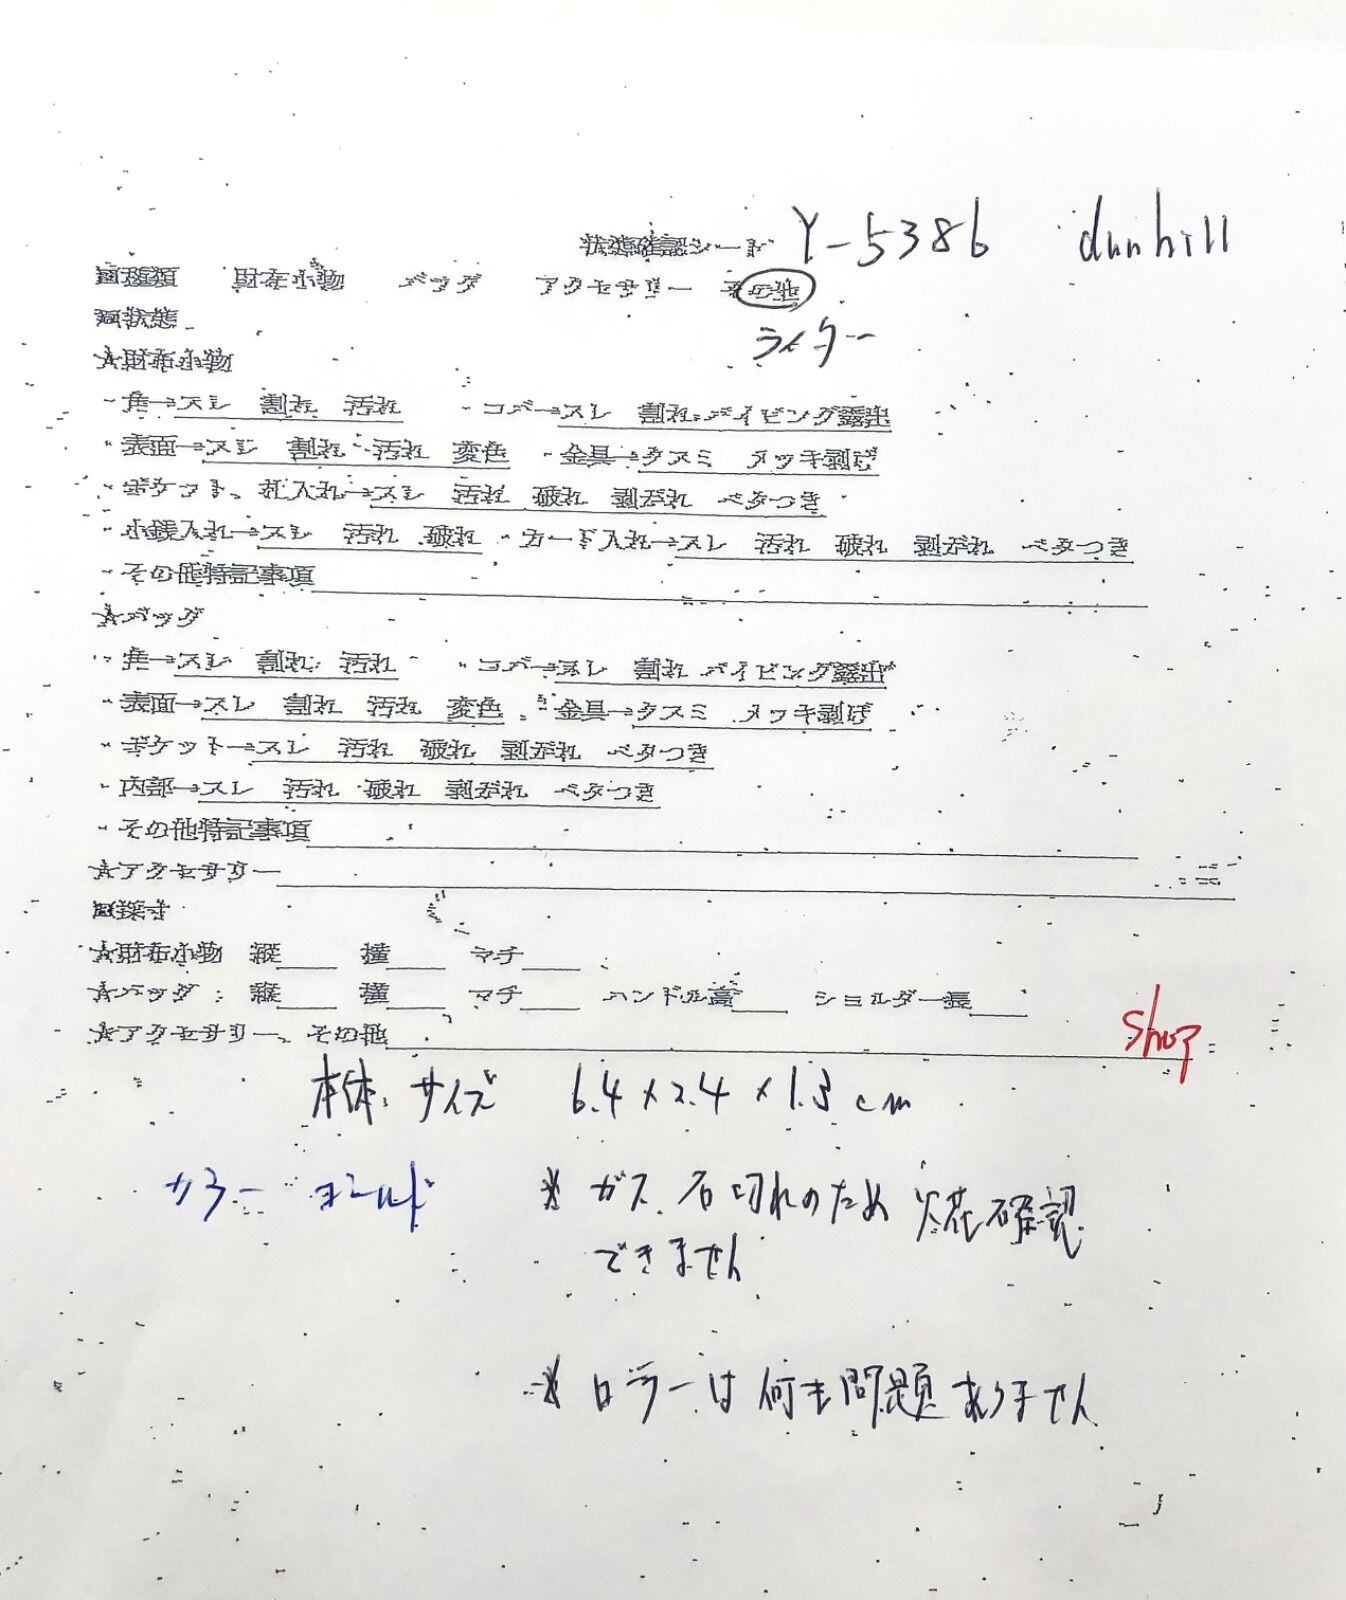 状態確認シート Y-5386 dunhill
■種類 財布小物 バッグ アクセサリー その他
ライター
■状態
★財布小物
・角→スレ 割れ 汚れ ・コバ→スレ 割れ パイピング露出
・表面→スレ 割れ 汚れ 変色 ・金具→クスミ メッキ剥げ
・ポケット、札入れ→スレ 汚れ 破れ 剥がれ ベタつき
・小銭入れ→スレ 汚れ 破れ ・カード入れ→スレ 汚れ 破れ 剥がれ ベタつき
・その他特記事項
★バッグ
・角→スレ 割れ 汚れ ・コバ→スレ 割れ パイピング露出
・表面→スレ 割れ 汚れ 変色 ・金具→クスミ メッキ剥げ
・ポケット→スレ 汚れ 破れ 剥がれ ベタつき
・内部→スレ 汚れ 破れ 剥がれ ベタつき
・その他特記事項
★アクセサリー
■採寸
★財布小物 縦 横 マチ
★バッグ 縦 横 マチ ハンドル高 ショルダー長
★アクセサリー、その他
shop
本体サイズ 6.4×2.4×1.3cm
カラー ゴールド ※ガス、石切れのため火花確認
できません
※ローラーは何も問題ありません